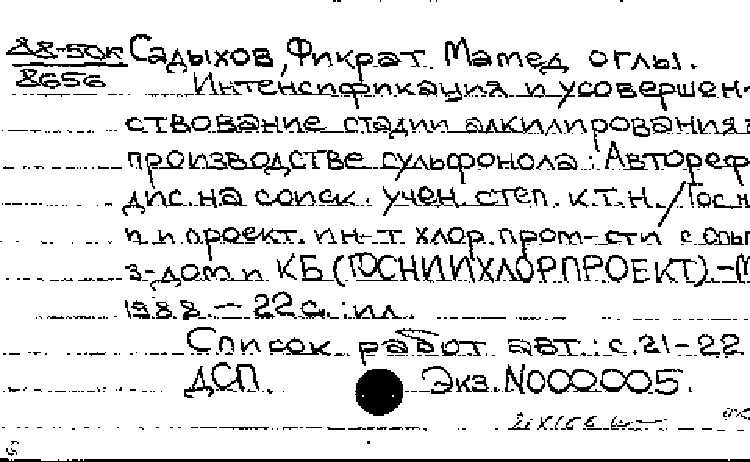 Д8-50к Садыхов, Фикрат Мамед оглы.
8656
Интенсификация и усовершен-
ствование стадии алкилирования в
производстве сульфонола: Автореф
дис. на соиск. учен. степ. к.т.н. /Гос н
и и проект. ин-т хлор. пром-сти с опыт
з-дом и КБ (ГОСНИИХЛОРПРОЕКТ).-М
1988. - 22 с.: ил.
Список работ авт.: с.21-22
ДСП. Экз. N000005.